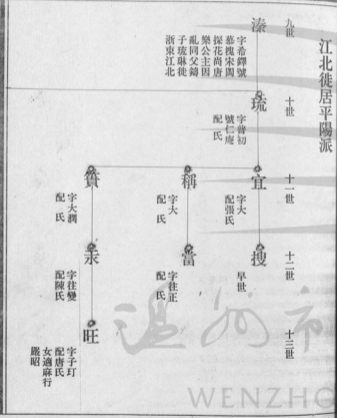 江北徙居平陽派
九世
十世
十一世
十二世
十三世
溱
字希鐸號
慕槐宋閩
探花尚唐
樂公主因
亂同父鑄
子琉琳徙
浙東江北
琉
字曾初
號仁庵
配 氏
宜
字大
配張氏
稱
字大
配 氏
貴
字大潤
配 氏
搜
早世
當
字往正
配 氏
汞
字往變
配陳氏
旺
字子玎
配唐氏
女適麻行
嚴昭
溫州市
WENZHO